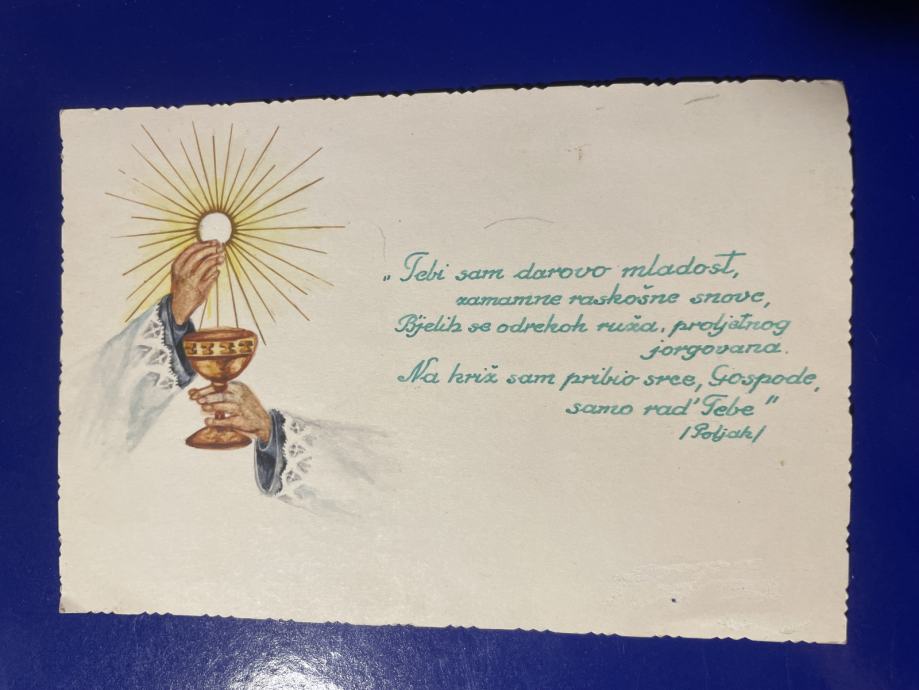 „Tebi sam darovo mladost,
zamamne raskošne snove,
Bijelih se odrekoh ruža, proljetnog
jorgovana.
Na križ sam pribio srce, Gospode,
samo rad' Tebe"
/Poljak/